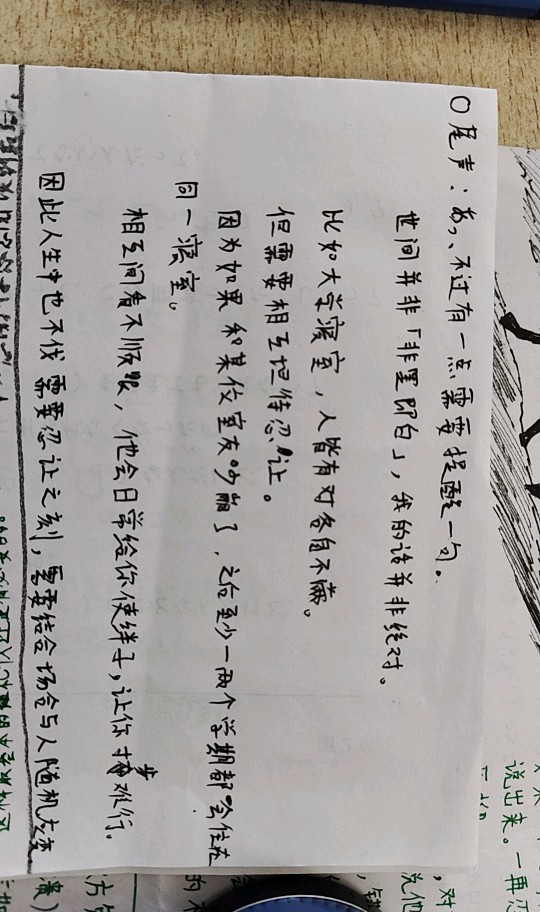 ○尾声：啊，不过有一点需要提醒一句。
世间并非「非黑即白」，我的话并非绝对。
比如大学寝室，人皆有对各自不满。
但需要相互担待忍让。
因为如果和某位室友吵崩了，之后至少一两个学期都会住在
同一寝室。
相互间看不顺眼，他会日常给你使绊子，让你寸步难行。
因此人生中也不伐需要忍让之刻，需要结合场合与人随机应变
说出来。一再忍